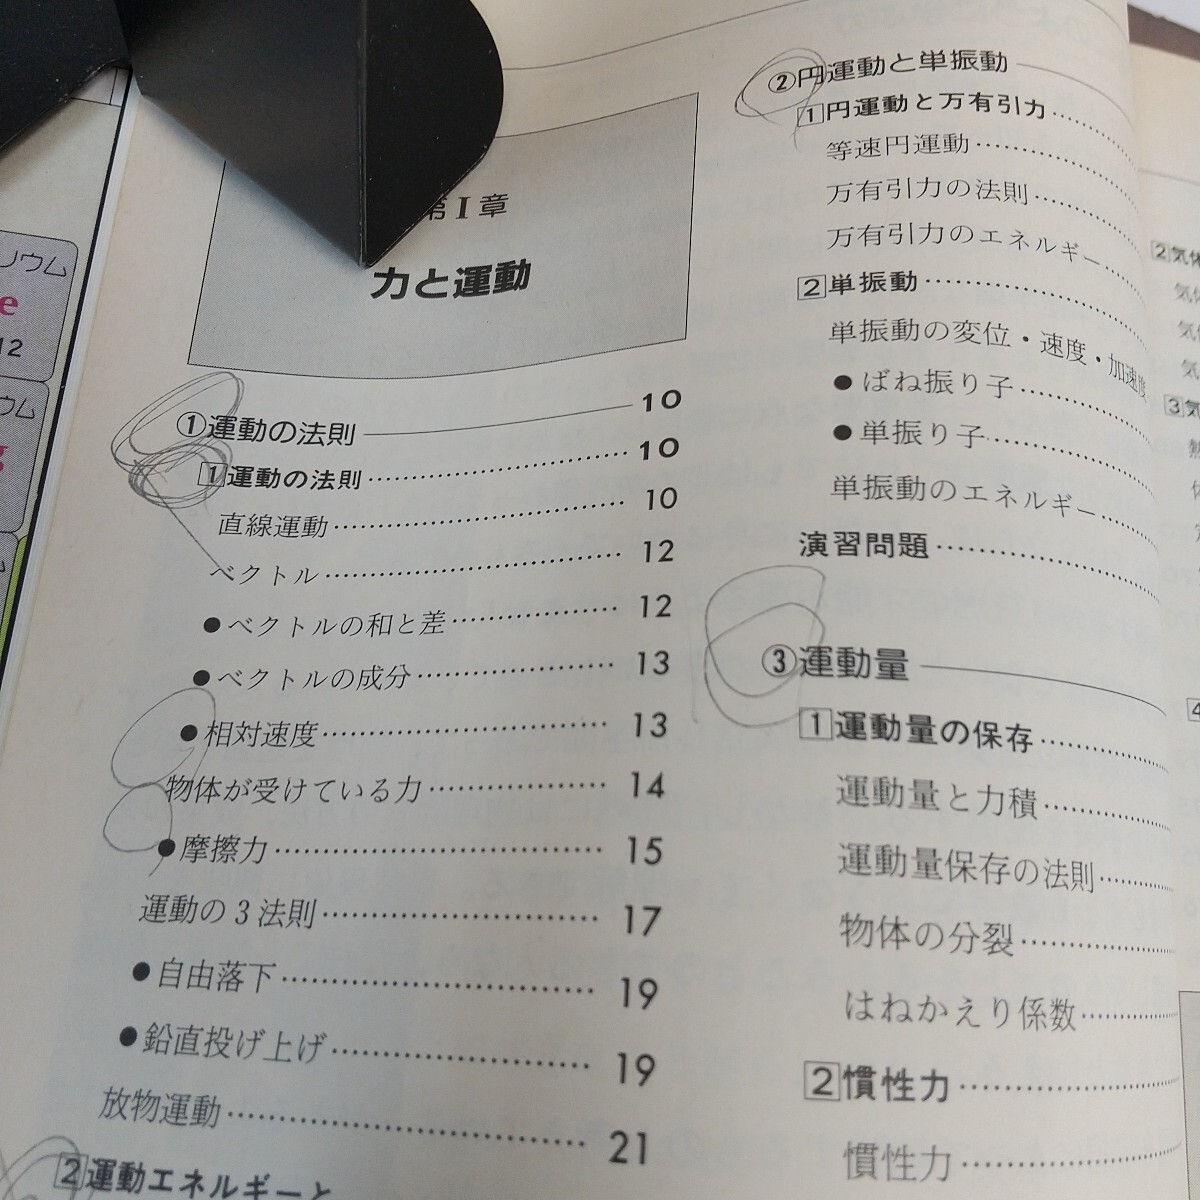 第I章
力と運動
①運動の法則 10
1運動の法則 10
直線運動 10
ベクトル 12
●ベクトルの和と差 12
●ベクトルの成分 13
●相対速度 13
物体が受けている力 14
●摩擦力 15
運動の3法則 17
●自由落下 19
●鉛直投げ上げ 19
放物運動 21
2運動エネルギーと
②円運動と単振動
1円運動と万有引力
等速円運動
万有引力の法則
万有引力のエネルギー
2単振動
単振動の変位・速度・加速度
●ばね振り子
●単振り子
単振動のエネルギー
演習問題
③運動量
1運動量の保存
運動量と力積
運動量保存の法則
物体の分裂
はねかえり係数
2慣性力
慣性力
リウム
e
12
ウム
g
2気体
気体
気体
気
3気
4